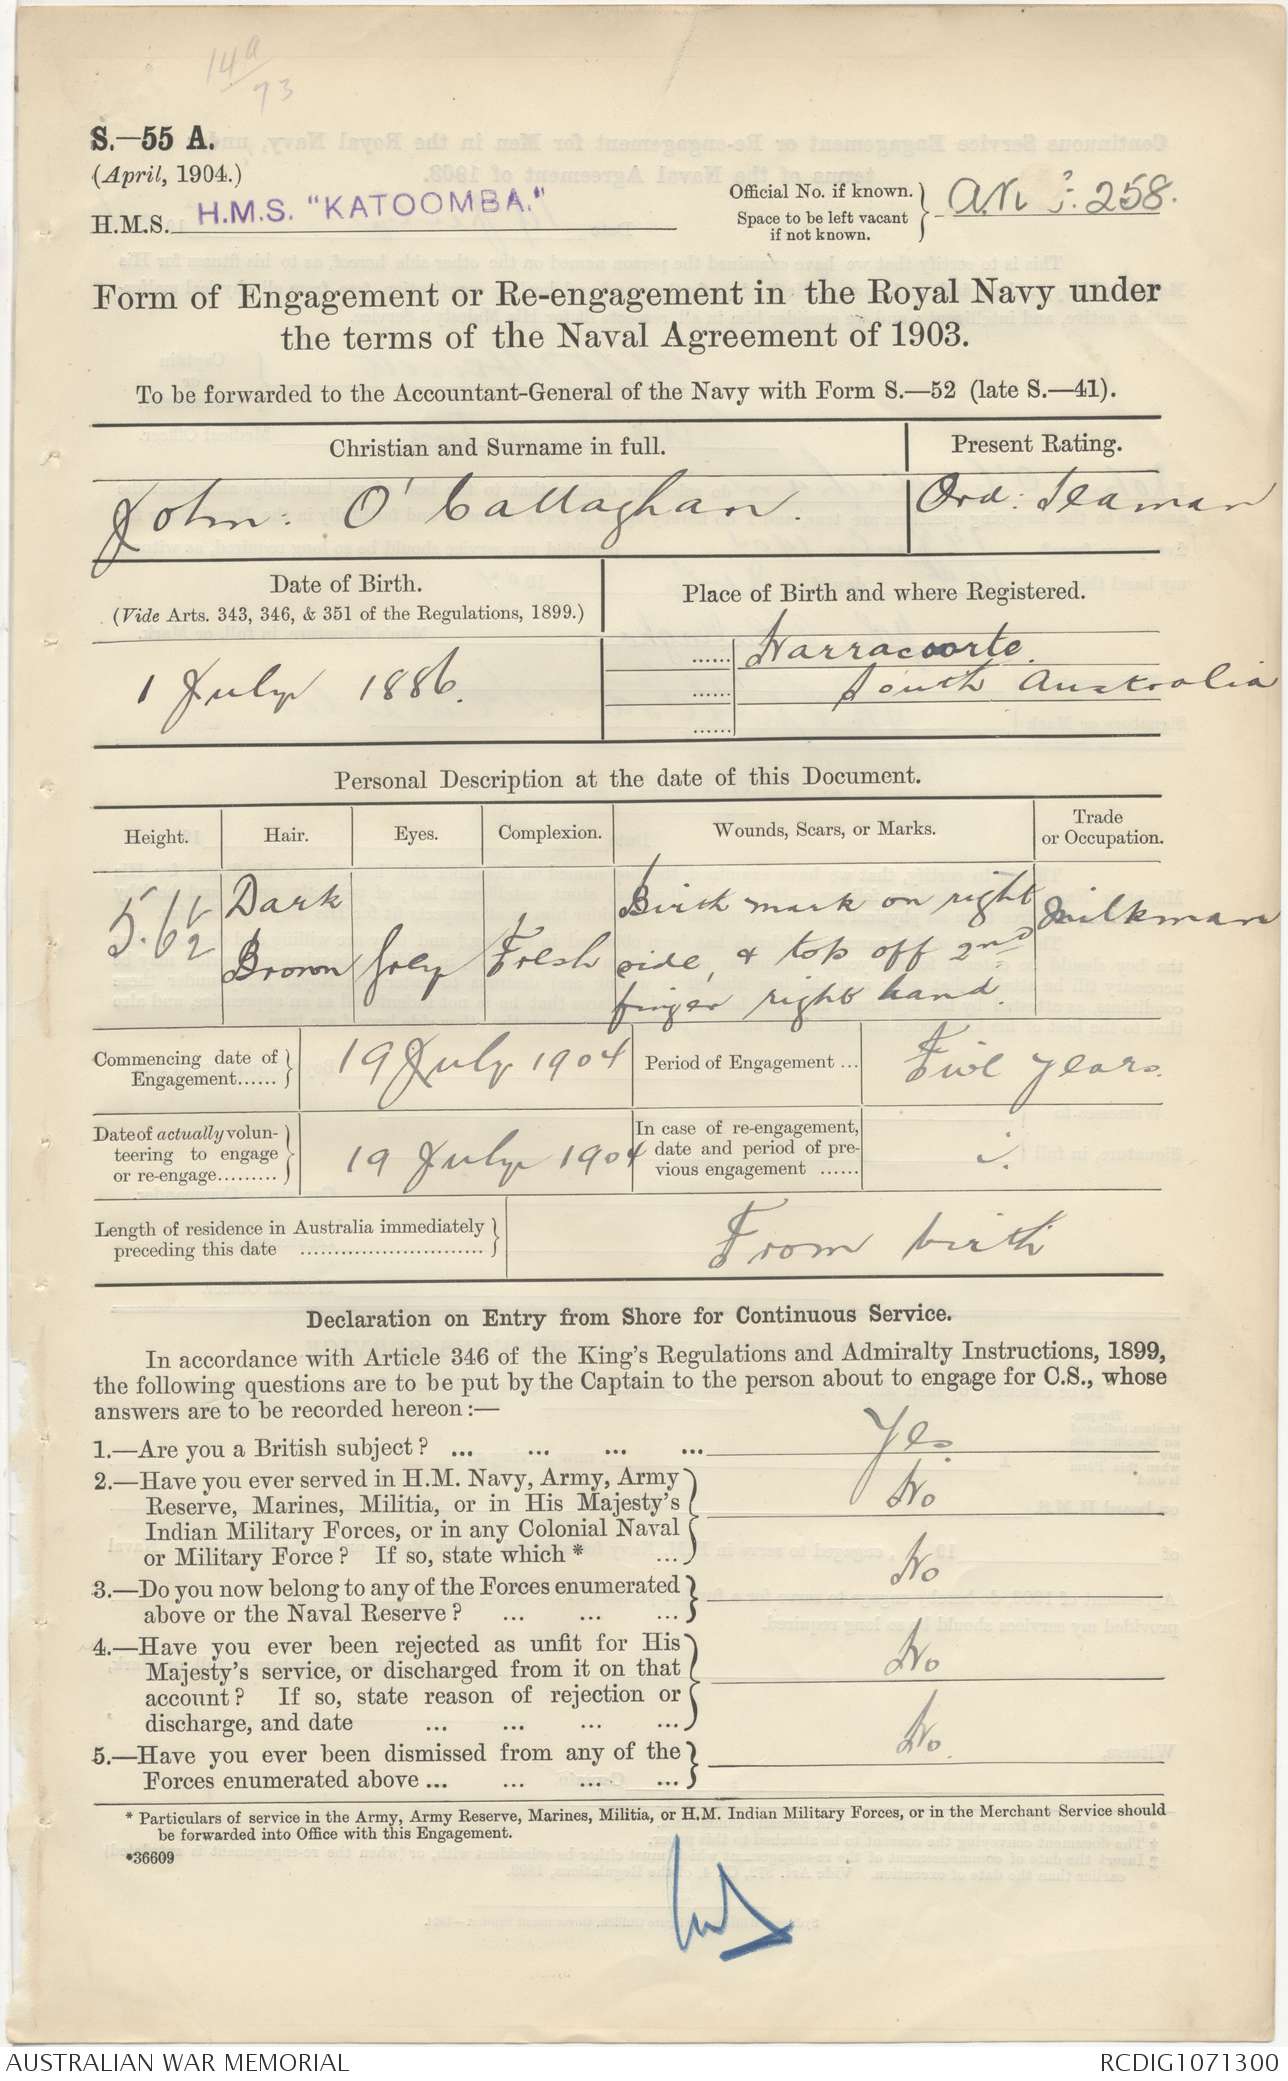 14a/93
S.—55 A.
(April, 1904.)
H.M.S. H.M.S. "KATOOMBA."
Official No. if known.
Space to be left vacant
if not known.
258.
Form of Engagement or Re-engagement in the Royal Navy under
the terms of the Naval Agreement of 1903.
To be forwarded to the Accountant-General of the Navy with Form S.—52 (late S.—41).
Christian and Surname in full. Present Rating.
John: O'Callaghan. Ord: Seaman
Date of Birth.
(Vide Arts. 343, 346, & 351 of the Regulations, 1899.)
Place of Birth and where Registered.
1 July 1886.
...... Narracoorte.
...... South Australia
......
Personal Description at the date of this Document.
Height. Hair. Eyes. Complexion. Wounds, Scars, or Marks. Trade
or Occupation.
Dark Birth mark on right Milkman
Brown Grey Fresh side, & top off 2nd
finger right hand.
Commencing date of
Engagement...... 19 July 1904 Period of Engagement ... Five years.
Date of actually volun-
teering to engage
or re-engage......... 19 July 1904
In case of re-engagement,
date and period of pre-
vious engagement ......
Length of residence in Australia immediately
preceding this date ........................... From birth
Declaration on Entry from Shore for Continuous Service.
In accordance with Article 346 of the King's Regulations and Admiralty Instructions, 1899,
the following questions are to be put by the Captain to the person about to engage for C.S., whose
answers are to be recorded hereon:—
1.—Are you a British subject? ... ... ... ... Yes.
2.—Have you ever served in H.M. Navy, Army, Army
Reserve, Marines, Militia, or in His Majesty's
Indian Military Forces, or in any Colonial Naval
or Military Force? If so, state which * ... No
3.—Do you now belong to any of the Forces enumerated
above or the Naval Reserve? ... ... ... No
4.—Have you ever been rejected as unfit for His
Majesty's service, or discharged from it on that
account? If so, state reason of rejection or
discharge, and date ... ... ... ... No
5.—Have you ever been dismissed from any of the
Forces enumerated above ... ... ... ... No.
* Particulars of service in the Army, Army Reserve, Marines, Militia, or H.M. Indian Military Forces, or in the Merchant Service should
be forwarded into Office with this Engagement.
*36609
AUSTRALIAN WAR MEMORIAL RCDIG1071300